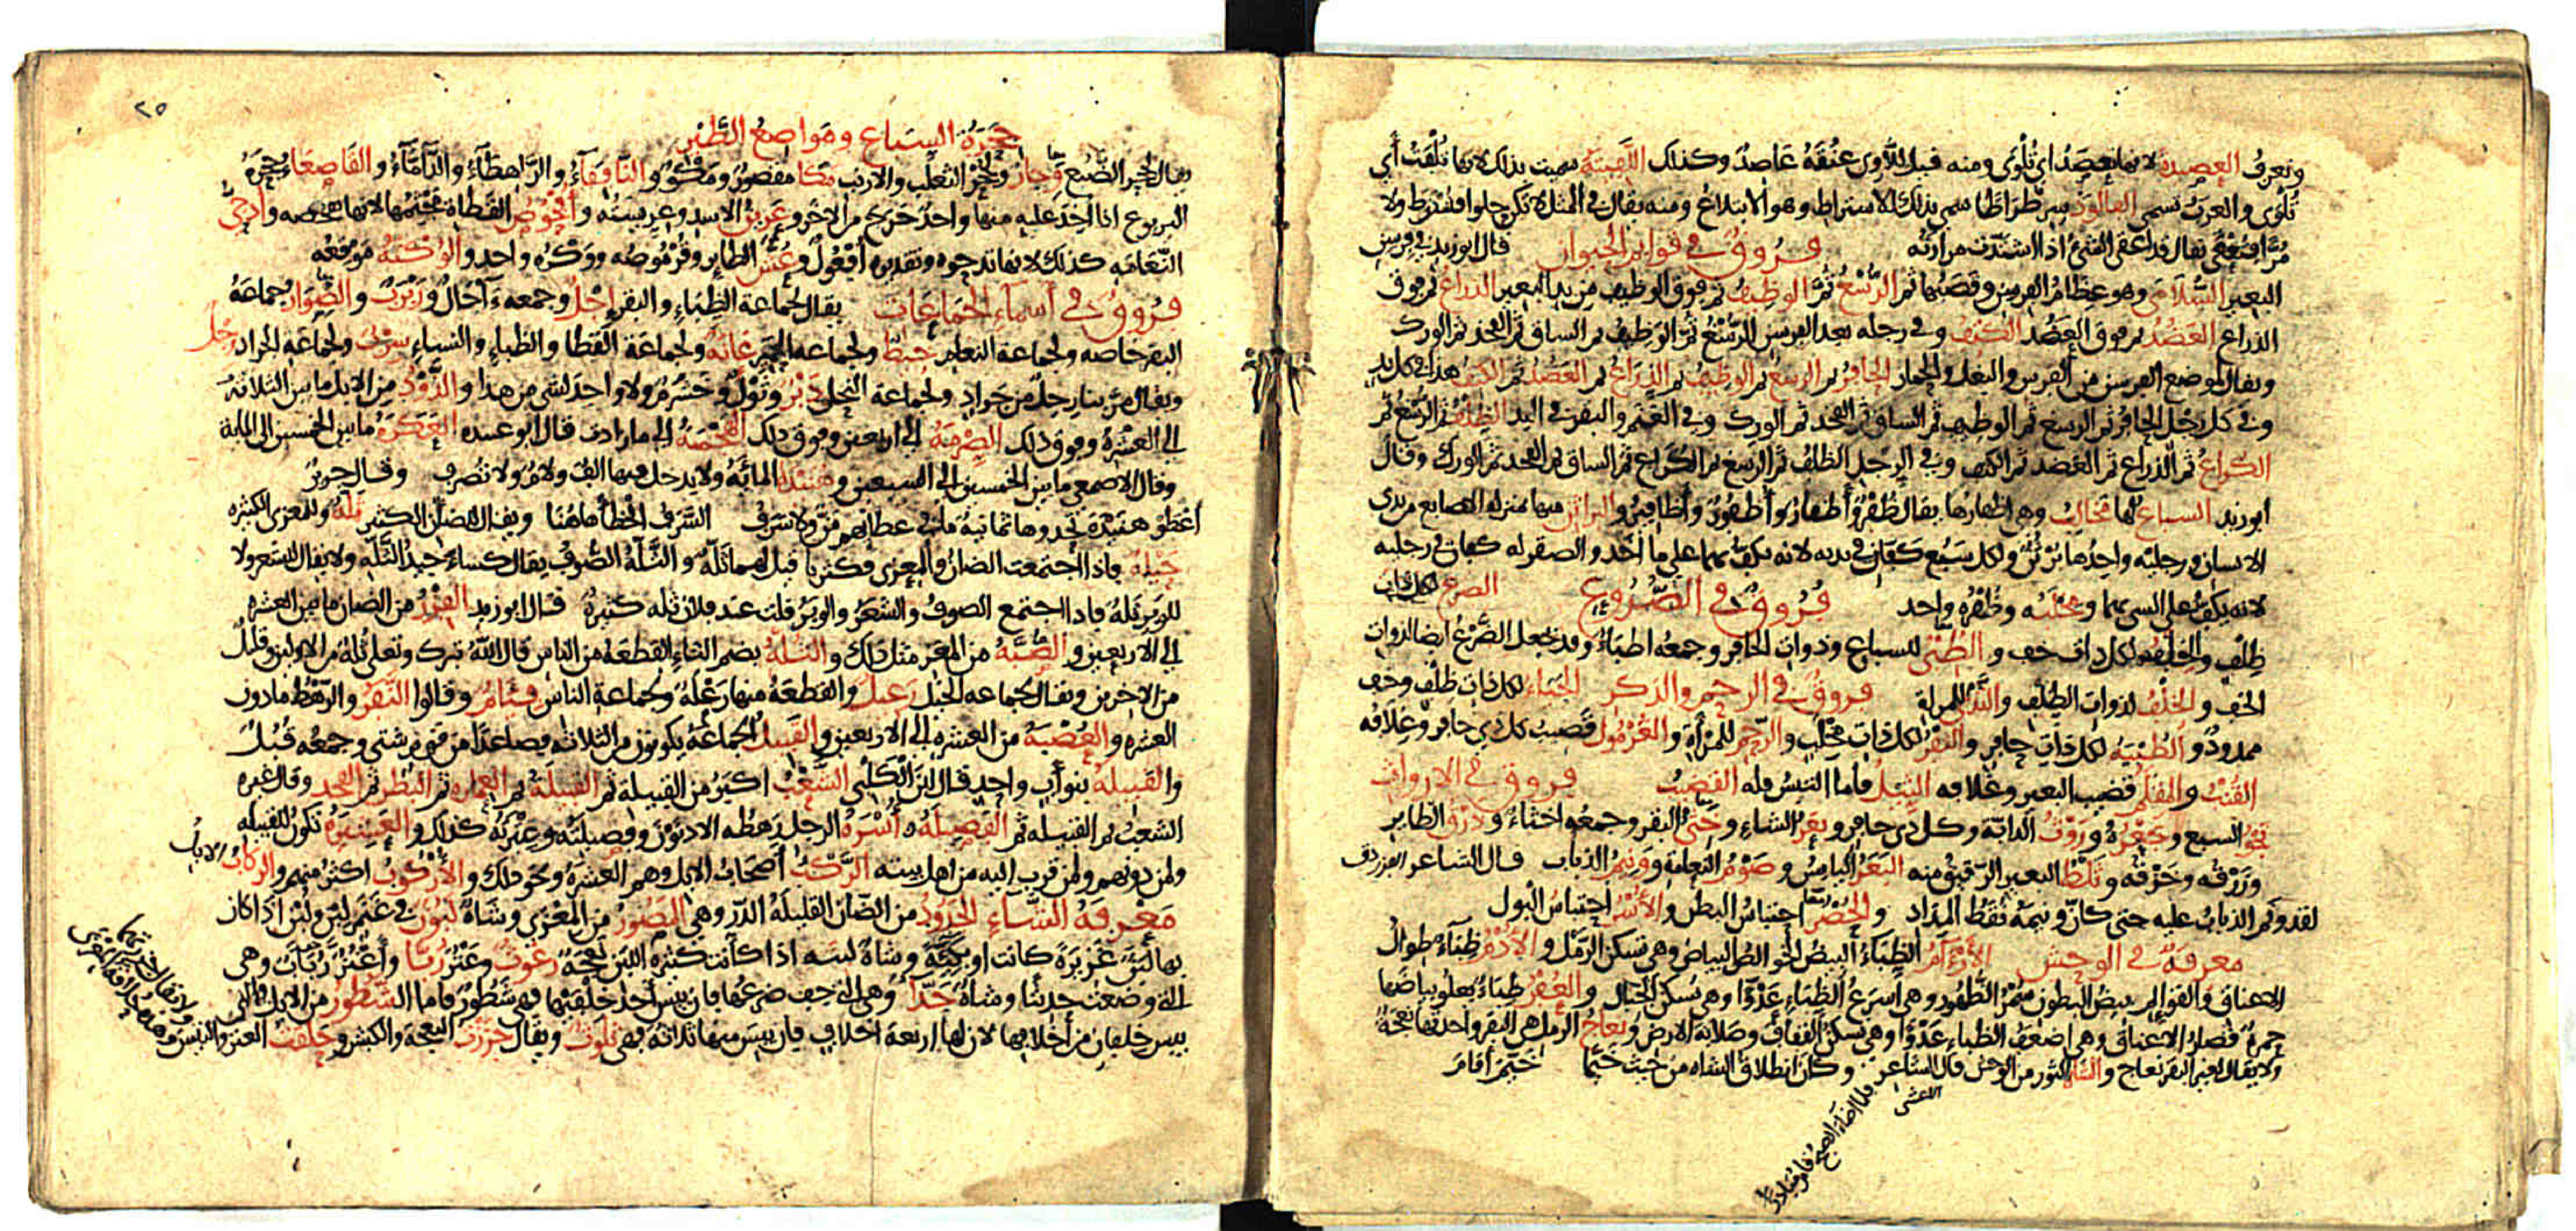 وتعرف العصيدة لانها تعصد اي تلوى ومنه قيل للاوي عنقه عاصد وكذلك اللفيتة سميت بذلك لانها تلفت أي
تلوى والعرب تسمي الفالوذ سرطراطا سمي بذلك للاستراط وهو الابتلاع ومنه يقال في المثل لا تكن حلوا فتسترط ولا
مرا فتعقى يقال قد اعقى الشئ اذا اشتدت مرارته فروق في قوائم الحيوان قال ابو زيد في فرسن
البعير السلامى وهو عظام الفرسن وقصبها ثم الرسغ ثم الوظيف ثم فوق الوظيف من يد البعير الذراع ثم فوق
الذراع العضد ثم فوق العضد الكتف وفي رجله بعد الفرسن الرسغ ثم الوظيف ثم الساق ثم الفخذ ثم الورك
ويقال لموضع الفرسن من الفرس والبغل والحمار الحافر ثم الرسغ ثم الوظيف ثم الذراع ثم العضد ثم الكتف هذا في كل يد
وفي كل رجل الحافر ثم الرسغ ثم الوظيف ثم الساق ثم الفخذ ثم الورك وفي الغنم والبقر في اليد الظلف ثم الرسغ ثم
الكراع ثم الذراع ثم العضد ثم الكتف وفي الرجل الظلف ثم الرسغ ثم الكراع ثم الساق ثم الفخذ ثم الورك وقال
ابو زيد السباع لها مخالب وهي اظفارها يقال ظفر وأظفار وأظفور وأظافير والبراثن منها بمنزلة الاصابع من يدي
الانسان ورجليه واحدها برثن ولكل سبع كفان في يديه لانه يكف بهما على ما اخذ والصقر له كفان في رجليه
لانه يكف على الشئ بهما ومخلبه وظفره واحد فروق في الضروع الضرع لكل ذات
ظلف والخلف لكل ذات خف والطبي للسباع وذوات الحافر وجمعه اطباء وقد يجعل الضرع ايضا لذوات
الخف والخلف لذوات الظلف والثدي للمراة فروق في الرحم والذكر الحياء لكل ذات ظلف وخف
ممدود والظبية لكل ذات حافر والثفر لكل ذات مخلب والرحم للمرأة والغرمول قضيب كل ذي حافر وغلافه
القنب والمقلم قضيب البعير وغلافه الثيل فأما التيس فله القضيب فروق في الارواث
نجو السبع وجعره وروث الدابة وكل ذي حافر وبعر الشاء وخثي البقر وجمعه اخثاء وذرق الطاير
وزرقه وخزقه وثلط البعير الرقيق منه البعر اليابس وصوم النعامة وونيم الذباب قال الشاعر الفرزدق
لقد ونم الذباب عليه حتى كأن ونيمه نقط المداد والحصر احتباس البطن والأسر احتباس البول
معرفة في الوحش الأرآم الظباء البيض الخوالص البياض وهي تسكن الرمل والأدم ظباء طوال
الاعناق والقوائم بيض البطون سمر الظهور وهي أسرع الظباء عدوا وهي تسكن الجبال والعفر ظباء يعلو بياضها
حمرة قصار الاعناق وهي اضعف الظباء عدوا وهي تسكن القفاف وصلابة الارض ونعاج الرمل هي البقر واحدتها نعجة
ولا يقال لغير البقر نعاج والشاة الثور من الوحش قال الشاعر وكان انطلاق الشاة من حيث خيما خيم أقام
الاعشى
فلما اضاء الصبح قام مبادرا
٢٥
جحرة السباع ومواضع الطير
يقال لجحر الضبع وجار ولجحر الثعلب والارنب مكا مقصور ومكو والنافقاء والراهطاء والداماء والقاصعاء جحرة
اليربوع اذا اخذ عليه منها واحد خرج من الاخر وعرين الاسد وعريسته وأفحوص القطاة مجثمها لانها تفحصه وأدحي
النعامة كذلك لانها تدحوه وتقديره أفعول وعش الطاير وقرموصه ووكره واحد والوكنة موقعه
فروق في أسماء الجماعات يقال لجماعة الظباء والبقر إجل وجمعه آجال وربرب والصوار جماعة
البقر خاصة ولجماعة النعام خيط ولجماعة الحمير عانة ولجماعة القطا والظباء والنساء سرب ولجماعة الجراد رجل
ويقال مر بنا رجل من جراد ولجماعة النحل دبر وثول وخشرم ولا واحد لشي من هذا والذود من الابل ما بين الثلاثة
الى العشرة وفوق ذلك الصرمة الى اربعين وفوق ذلك الهجمة الى ما زادت قال ابو عبيدة العكرة ما بين الخمسين الى المائة
وقال الاصمعي ما بين الخمسين الى السبعين وهنيدة المائة ولا يدخل فيها الف ولام ولا تصرف وقال جرير
أعطوا هنيدة تحدوها ثمانية ما في عطائهم من ولا سرف السرف الخطأ هاهنا ويقال للضأن الكثير ثلة وللمعزى الكثيرة
حيلة فاذا اجتمعت الضان والمعزى فكثرتا قيل لهما ثلة والثلة الصوف يقال كساء جيد الثلة ولا يقال للشعر ولا
للوبر ثلة فاذا اجتمع الصوف والشعر والوبر قلت عند فلان ثلة كثيرة قال ابو زيد الفزر من الضان ما بين العشرة
الى الاربعين والصبة من المعز مثل ذلك والثلة بضم الثاء القطعة من الناس قال الله تبرك وتعلى ثلة من الاولين وقليل
من الاخرين ويقال لجماعة الخيل رعيل والقطعة منها رعلة ولجماعة الناس فئام وقالوا النفر والرهط ما دون
العشرة والعصبة من العشرة الى الاربعين والقبيل الجماعة يكونون من الثلاثة فصاعدا من قوم شتى وجمعه قبل
والقبيلة بنو أب واحد قال ابن الكلبي الشعب اكبر من القبيلة ثم القبيلة ثم العمارة ثم البطن ثم الفخذ وقال غيره
الشعب ثم القبيلة ثم الفصيلة وأسرة الرجل رهطه الادنون وفصيلته وعترته كذلك والعشيرة تكون للقبيلة
ولمن دونهم ولمن قرب اليه من اهل بيته الركب أصحاب الابل وهم العشرة ونحو ذلك والأركوب اكثر منهم والركاب الابل
معرفة في الشاء الجدود من الضان القليلة الدر وهي المصور من المعزى وشاة لبون في غنم لبن ولبن اذا كان
بها لبن غزيرة كانت او بكية وشاة لبنة اذا كانت كثيرة اللبن نعجة رغوث وعنز ربى وأعنز رباب وهي
التي وضعت حديثا وشاة جداء وهي التي جف ضرعها فان يبس أحد خلفيها فهي شطور فاما الشطور من الابل فالتي
يبس خلفان من أخلافها لان لها اربعة اخلاف فان يبس منها ثلاثة فهي ثلوث ويقال جززت النعجة والكبش وحلقت العنز والتيس
ولا يقال جززتهما